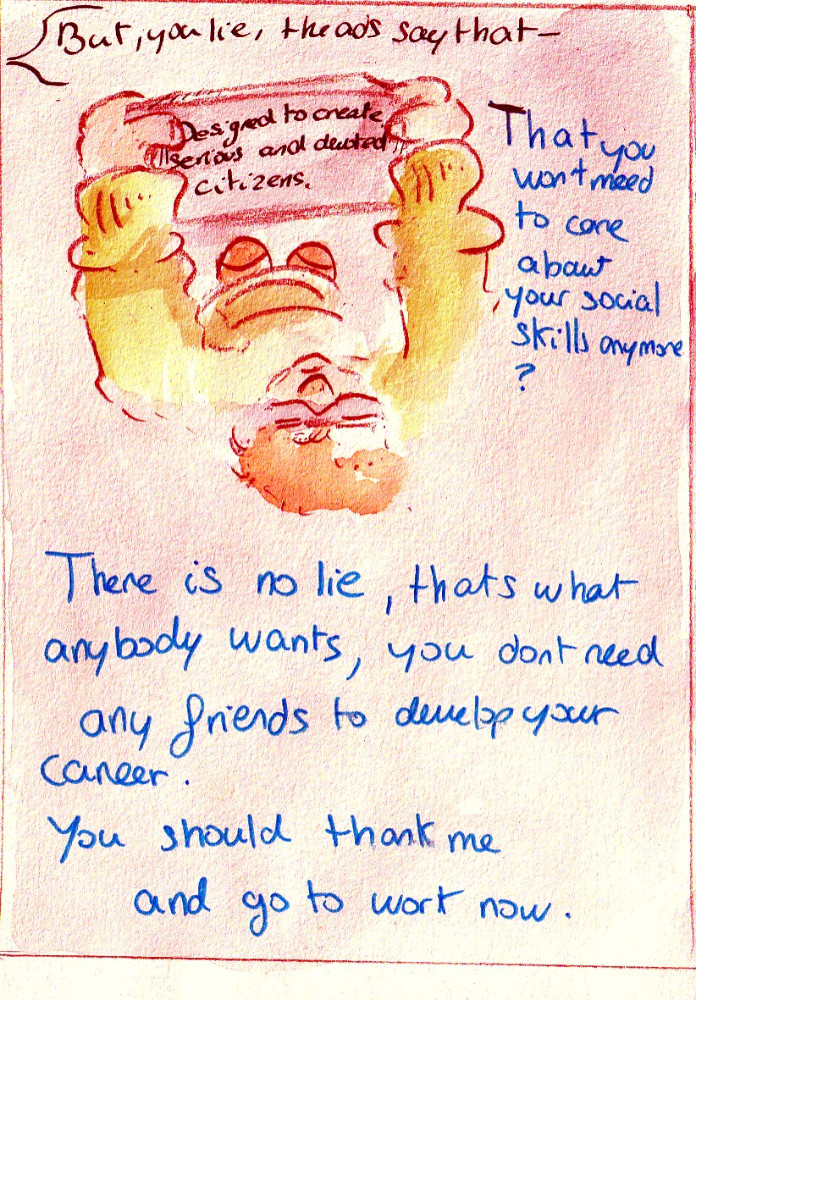 But, you lie, the ads say that —
Designed to create
serious and devoted
citizens.
That you
won't need
to care
about
your social
skills anymore
?
There is no lie, thats what
anybody wants, you dont need
any friends to develop your
career.
You should thank me
and go to work now.